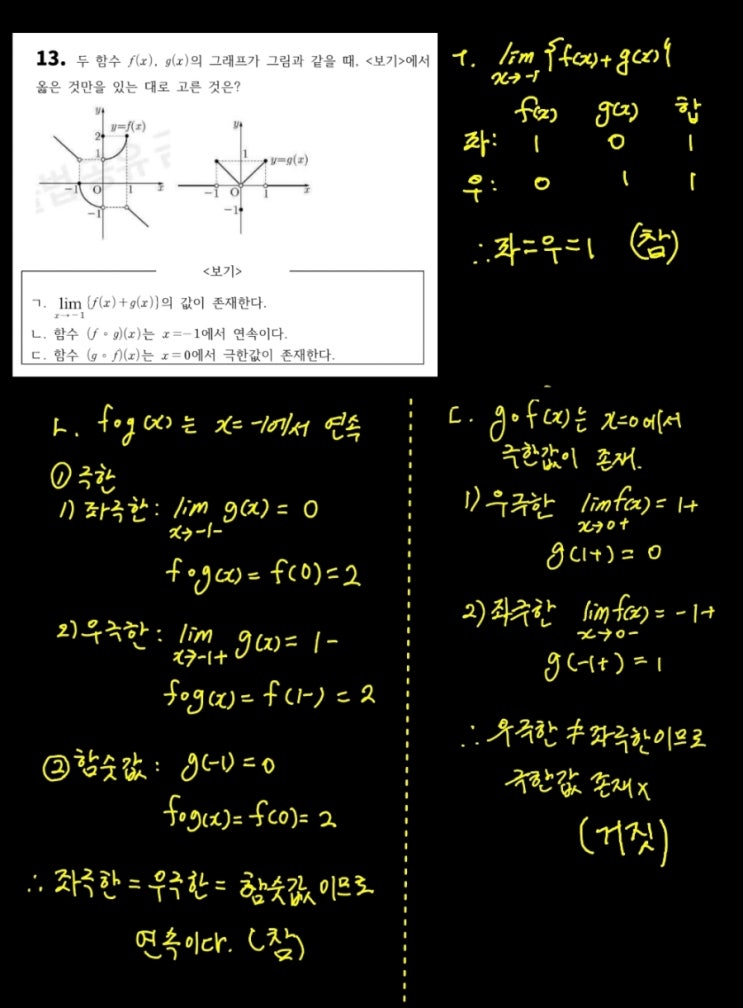 13. 두 함수 f(x), g(x)의 그래프가 그림과 같을 때, <보기>에서
옳은 것만을 있는 대로 고른 것은?
y
2
y=f(x)
1
-1 O 1 x
-1
y
1
y=g(x)
-1 O 1 x
-1
<보기>
ㄱ. lim {f(x)+g(x)}의 값이 존재한다.
x→-1
ㄴ. 함수 (f∘g)(x)는 x=-1에서 연속이다.
ㄷ. 함수 (g∘f)(x)는 x=0에서 극한값이 존재한다.
ㄱ. lim {f(x)+g(x)}
x→-1
f(x) g(x) 합
좌: 1 0 1
우: 0 1 1
∴ 좌=우=1 (참)
ㄴ. f∘g(x)는 x=-1에서 연속
① 극한
1) 좌극한: lim g(x) = 0
x→-1-
f∘g(x) = f(0) = 2
2) 우극한: lim g(x) = 1-
x→-1+
f∘g(x) = f(1-) = 2
② 함숫값: g(-1) = 0
f∘g(x) = f(0) = 2
∴ 좌극한 = 우극한 = 함숫값이므로
연속이다. (참)
ㄷ. g∘f(x)는 x=0에서
극한값이 존재.
1) 우극한 lim f(x) = 1+
x→0+
g(1+) = 0
2) 좌극한 lim f(x) = -1+
x→0-
g(-1+) = 1
∴ 우극한 ≠ 좌극한이므로
극한값 존재x
(거짓)